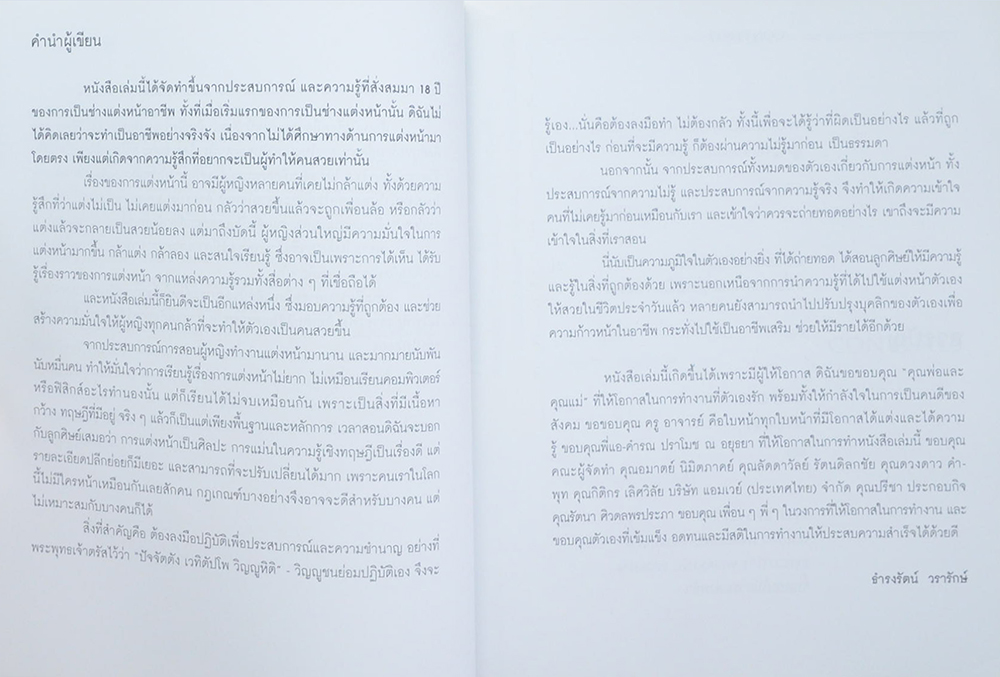 คำนำผู้เขียน
หนังสือเล่มนี้ได้จัดทำขึ้นจากประสบการณ์ และความรู้ที่สั่งสมมา 18 ปี
ของการเป็นช่างแต่งหน้าอาชีพ ทั้งที่เมื่อเริ่มแรกของการเป็นช่างแต่งหน้านั้น ดิฉันไม่
ได้คิดเลยว่าจะทำเป็นอาชีพอย่างจริงจัง เนื่องจากไม่ได้ศึกษาทางด้านการแต่งหน้ามา
โดยตรง เพียงแต่เกิดจากความรู้สึกที่อยากจะเป็นผู้ทำให้คนสวยเท่านั้น
เรื่องของการแต่งหน้านี้ อาจมีผู้หญิงหลายคนที่เคยไม่กล้าแต่ง ทั้งด้วยความ
รู้สึกที่ว่าแต่งไม่เป็น ไม่เคยแต่งมาก่อน กลัวว่าสวยขึ้นแล้วจะถูกเพื่อนล้อ หรือกลัวว่า
แต่งแล้วจะกลายเป็นสวยน้อยลง แต่มาถึงบัดนี้ ผู้หญิงส่วนใหญ่มีความมั่นใจในการ
แต่งหน้ามากขึ้น กล้าแต่ง กล้าลอง และสนใจเรียนรู้ ซึ่งอาจเป็นเพราะการได้เห็น ได้รับ
รู้เรื่องราวของการแต่งหน้า จากแหล่งความรู้รวมทั้งสื่อต่าง ๆ ที่เชื่อถือได้
และหนังสือเล่มนี้ก็ยินดีจะเป็นอีกแหล่งหนึ่ง ซึ่งมอบความรู้ที่ถูกต้อง และช่วย
สร้างความมั่นใจให้ผู้หญิงทุกคนกล้าที่จะทำให้ตัวเองเป็นคนสวยขึ้น
จากประสบการณ์การสอนผู้หญิงทำงานแต่งหน้ามานาน และมากมายนับพัน
นับหมื่นคน ทำให้มั่นใจว่าการเรียนรู้เรื่องการแต่งหน้าไม่ยาก ไม่เหมือนเรียนคอมพิวเตอร์
หรือฟิสิกส์อะไรทำนองนั้น แต่ก็เรียนได้ไม่จบเหมือนกัน เพราะเป็นสิ่งที่มีเนื้อหา
กว้าง ทฤษฎีที่มีอยู่ จริง ๆ แล้วก็เป็นแต่เพียงพื้นฐานและหลักการ เวลาสอนดิฉันจะบอก
กับลูกศิษย์เสมอว่า การแต่งหน้าเป็นศิลปะ การแม่นในความรู้เชิงทฤษฎีเป็นเรื่องดี แต่
รายละเอียดปลีกย่อยก็มีเยอะ และสามารถที่จะปรับเปลี่ยนได้มาก เพราะคนเราในโลก
นี้ไม่มีใครหน้าเหมือนกันเลยสักคน กฎเกณฑ์บางอย่างจึงอาจจะดีสำหรับบางคน แต่
ไม่เหมาะสมกับบางคนก็ได้
สิ่งที่สำคัญคือ ต้องลงมือปฏิบัติเพื่อประสบการณ์และความชำนาญ อย่างที่
พระพุทธเจ้าตรัสไว้ว่า "ปัจจัตตัง เวทิตัปโพ วิญญูหิติ" - วิญญูชนย่อมปฏิบัติเอง จึงจะ
รู้เอง...นั่นคือต้องลงมือทำ ไม่ต้องกลัว ทั้งนี้เพื่อจะได้รู้ว่าที่ผิดเป็นอย่างไร แล้วที่ถูก
เป็นอย่างไร ก่อนที่จะมีความรู้ ก็ต้องผ่านความไม่รู้มาก่อน เป็นธรรมดา
นอกจากนั้น จากประสบการณ์ทั้งหมดของตัวเองเกี่ยวกับการแต่งหน้า ทั้ง
ประสบการณ์จากความไม่รู้ และประสบการณ์จากความรู้จริง จึงทำให้เกิดความเข้าใจ
คนที่ไม่เคยรู้มาก่อนเหมือนกับเรา และเข้าใจว่าควรจะถ่ายทอดอย่างไร เขาถึงจะมีความ
เข้าใจในสิ่งที่เราสอน
นี่นับเป็นความภูมิใจในตัวเองอย่างยิ่ง ที่ได้ถ่ายทอด ได้สอนลูกศิษย์ให้มีความรู้
และรู้ในสิ่งที่ถูกต้องด้วย เพราะนอกเหนือจากการนำความรู้ที่ได้ไปใช้แต่งหน้าตัวเอง
ให้สวยในชีวิตประจำวันแล้ว หลายคนยังสามารถนำไปปรับปรุงบุคลิกของตัวเองเพื่อ
ความก้าวหน้าในอาชีพ กระทั่งไปใช้เป็นอาชีพเสริม ช่วยให้มีรายได้อีกด้วย
หนังสือเล่มนี้เกิดขึ้นได้เพราะมีผู้ให้โอกาส ดิฉันขอขอบคุณ "คุณพ่อและ
คุณแม่" ที่ให้โอกาสในการทำงานที่ตัวเองรัก พร้อมทั้งให้กำลังใจในการเป็นคนดีของ
สังคม ขอขอบคุณ ครู อาจารย์ คือใบหน้าทุกใบหน้าที่มีโอกาสได้แต่งและได้ความ
รู้ ขอบคุณพี่แอ-ดำรณ ปราโมช ณ อยุธยา ที่ให้โอกาสในการทำหนังสือเล่มนี้ ขอบคุณ
คณะผู้จัดทำ คุณอมาตย์ นิมิตภาคย์ คุณลัดดาวัลย์ รัตนดิลกชัย คุณดวงดาว คำ-
พุท คุณกิติกร เลิศวิลัย บริษัท แอมเวย์ (ประเทศไทย) จำกัด คุณปรีชา ประกอบกิจ
คุณรัตนา ศิวดลพรประภา ขอบคุณ เพื่อน ๆ พี่ ๆ ในวงการที่ให้โอกาสในการทำงาน และ
ขอบคุณตัวเองที่เข้มแข็ง อดทนและมีสติในการทำงานให้ประสบความสำเร็จได้ด้วยดี
ธำรงรัตน์ วรารักษ์